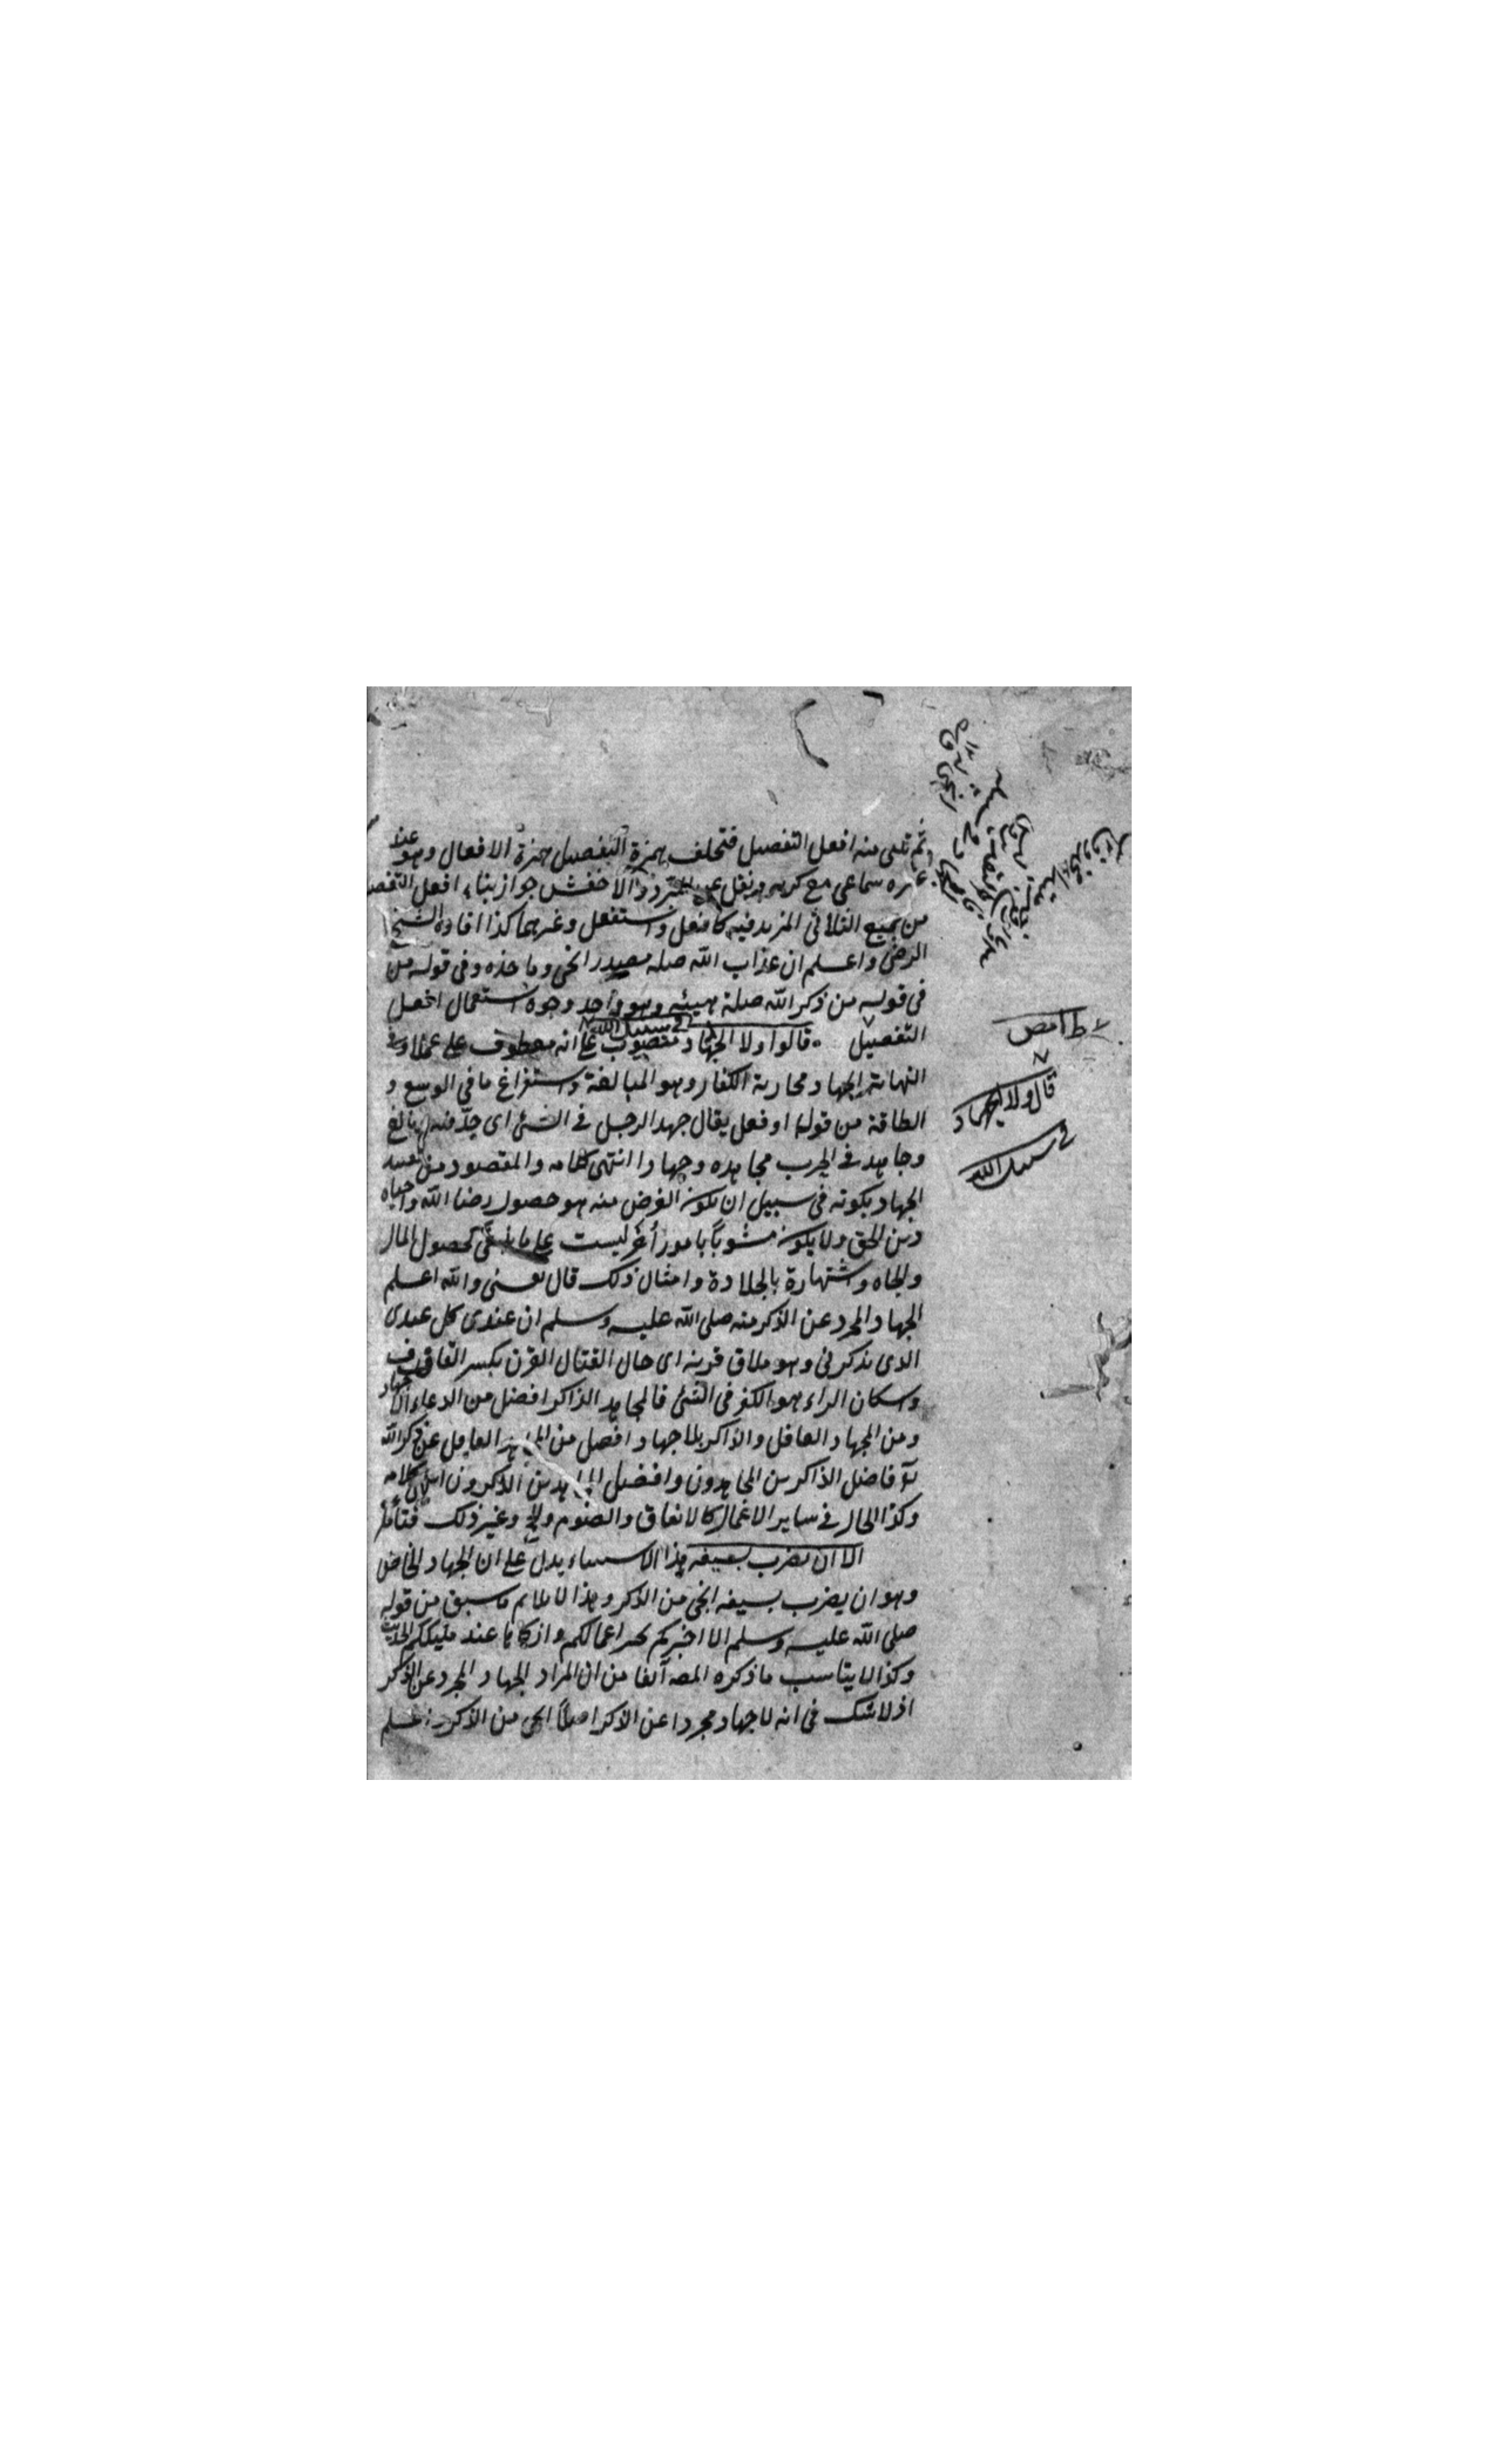 ثم تلى منه افعل التفصيل فتخلف بهمزة التفصيل همزة الافعال وهو عند
غيره سماعى مع كثرته ونقل عن المبرد والاخفش جواز بناء افعل التفضيل
من جميع الثلاثى المزيد فيه كانفعل واستفعل وغيرهما كذا افاده الشيخ
الرضى واعلم ان عذاب الله صلة مصدر انجى وما حذه وفى قوله من
فى قوله من ذكر الله صلة وهو واحد وجوه استعمال افعل
التفصيل قالوا ولا الجهاد فى سبيل الله منصوب على انه معطوف على عملا وفى
النهاية الجهاد محاربة الكفار وهو المبالغة واستفراغ ما فى الوسع و
الطاقة من قول او فعل يقال جهد الرجل فى الشئ اى جد فيه وبالغ
وجاهد فى الحرب مجاهدة وجهادا انتهى كلامه والمقصود من تقييد
الجهاد بكونه فى سبيل ان يكون الغرض منه هو حصول رضا الله واحياه
دين الحق ولا يكون مشوبا بامور أخر ليست على ما ينبغى كحصول المال
والجاه واشتهارة بالجلادة وامثال ذلك قال يعنى والله اعلم
الجهاد المجرد عن الذكر منه صلى الله عليه وسلم ان عبدى كل عبدى
الذى يذكرنى وهو ملاق قرينه اى حال القتال القرن بكسر القاف
واسكان الراء هو الكفو فى الشئ فالمجاهد الذاكر افضل من الدعاء بلا جهاد
ومن الجهاد الغافل والذاكر بلا جهاد افضل من المجاهد الغافل عن ذكر الله
تع فافضل الذاكرين المجاهدون وافضل المجاهدين الذاكرون انتهى كلامه
وكذا الحال فى ساير الاعمال كالانفاق والصوم والحج وغير ذلك فتأمل
الا ان يضرب بسيفه هذا الاستثناء يدل على ان الجهاد الخاص
وهو ان يضرب بسيفه انجى من الذكر وهذا لا يلايم ما سبق من قوله
صلى الله عليه وسلم الا اخبركم بخير اعمالكم وازكاها عند مليككم الحديث
وكذا لا يناسب ما ذكره المصه آنفا من ان المراد الجهاد المجرد عن الذكر
اذ لا شك فى انه لا جهاد مجردا عن الذكر اصلا انجى من الذكر
قال ولا الجهاد
فى سبيل الله